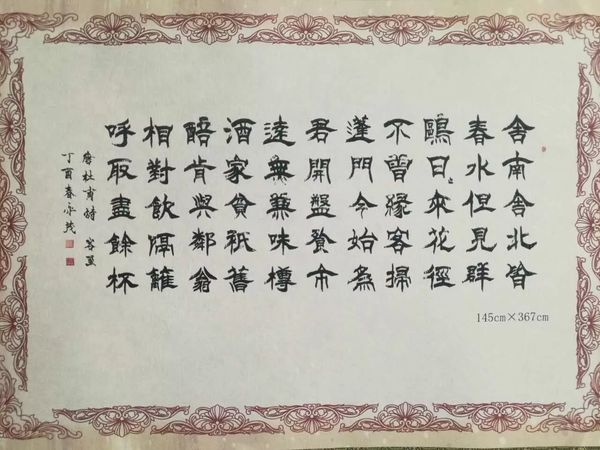 舍南舍北皆
春水但見群
鷗日々來花徑
不曾緣客掃
蓬門今始為
君開盤飱市
遠無兼味樽
酒家貧祇舊
醅肯與鄰翁
相對飲隔籬
呼取盡餘杯
唐杜甫詩 客至
丁酉春永茂
145cm×367cm